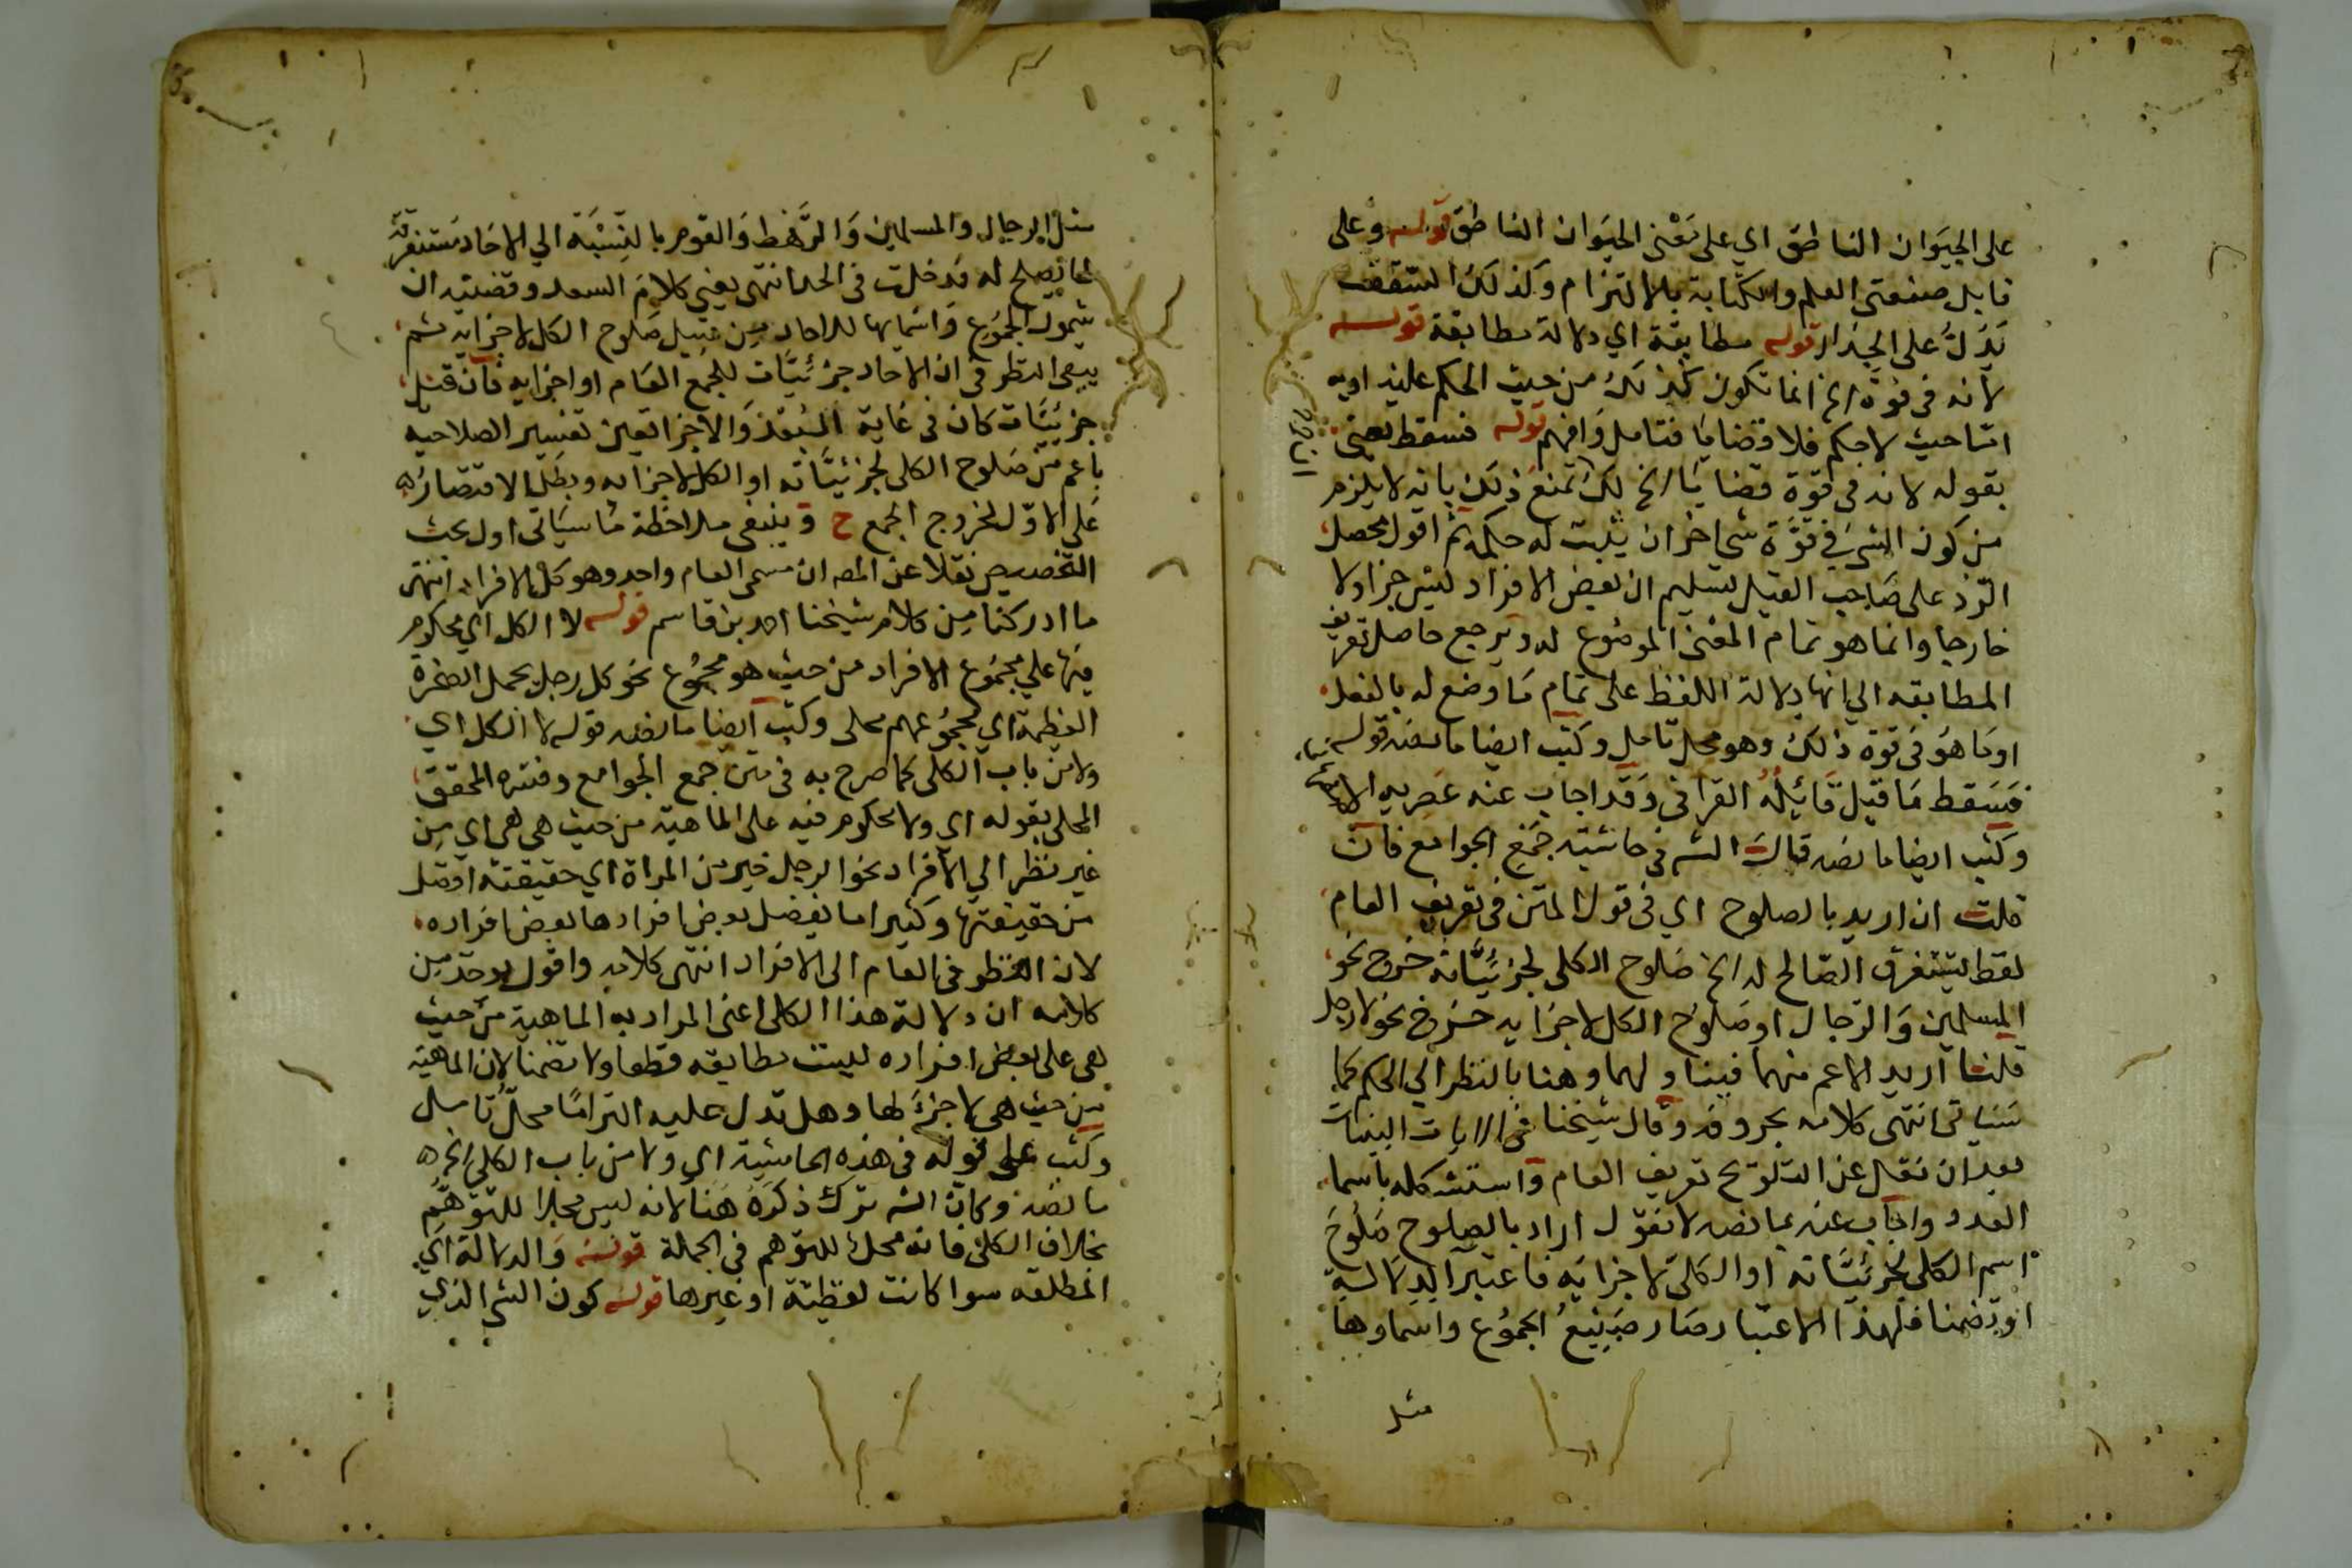 على الحيوان الناطق اي على معنى الحيوان الناطق قوله وعلى
قابل صنعتى العلم والكتابة بالالتزام وكذلك السقف
يدل على الجدار قوله مطابقة اي دلالة مطابقة قوله
لانه فى قوة الخ انما تكون كذلك من حيث الحكم عليه او به
اما حيث لا حكم فلا قضايا فتامل وافهم قوله فسقط يعنى
بقوله لانه فى قوة قضايا الخ لك تمنع ذلك بانه لا يلزم
من كون الشى فى قوة شي اخر ان يثبت له حكمه ثم اقول محصل
الرد على صاحب القيل تسليم ان بعض الافراد ليس جزا ولا
خارجا وانما هو تمام المعنى الموضوع له ويرجع حاصل تعريف
المطابقه الي انها دلالة اللفظ على تمام ما وضع له بالفعل
او ما هو فى قوة ذلك وهو محل تامل وكتب ايضا ما نصه قوله
فسقط ما قيل قائله القرافى وقد اجاب عنه عصريه
وكتب ايضا ما نصه قال الشه فى حاشية جمع الجوامع فان
قلت ان اريد بالصلوح اي فى قول المتن فى تعريف العام
لفظ يستغرق الصالح له الخ صلوح الكلى لجزئياته خرج نحو
المسلمين والرجال او صلوح الكل لاجزايه خرج نحو لا رجل
قلنا اريد الاعم منهما فيناولهما وهنا بالنظر الي الحكم كما
سياتى انتهى كلامه بحروفه وقال شيخنا فى الايات البينات
بعد ان نقل عن التلويح تعريف العام واستشكله باسما
العدد واجاب عنه بما نصه لانقول اراد بالصلوح صلوح
اسم الكلى لجزئياته او الكل لاجزايه فاعتبر الدلالة
او تضمنا فلهذا الاعتبار صار صيغ الجموع واسماوها
مثل
مثل الرجال والمسلمين والرهط والقوم بالنسبة الي الاحاد مستغرقة
لما يصلح له فدخلت فى الحد انتهى يعني كلام السعد وقضيته ان
شمول الجموع واسمايها للاحاد من قبيل صلوح الكل لاجزايه ثم
يبقى النظر فى ان الاحاد جزئيات للجمع العام او اجزايه فان قيل
جزئيات كان فى غاية البعد والاجزا تعين تفسير الصلاحيه
باعم من صلوح الكلى لجزئياته او الكل لاجزايه وبطل الاقتصار
على الاول لخروج الجمع ح وينبغى ملاحظة ما سياتى اول بحث
التخصيص نقلا عن المصه ان مسمى العام واحد وهو كل الافراد انتهى
ما ادركنا من كلام شيخنا احمد بن قاسم قوله لا الكل اي محكوم
فيها علي مجموع الافراد من حيث هو مجموع نحو كل رجل يحمل الصخرة
العظيمة اي مجموعهم محلى وكتب ايضا ما نصه قوله لا الكل اي
ولا من باب الكلى كما صرح به فى متن جمع الجوامع وفسره المحقق
المحلى بقوله اي ولا محكوم فيه على الماهية من حيث هى هى اي من
غير نظر الي الافراد نحو الرجل خير من المراة اي حقيقته افضل
من حقيقتها وكثيرا ما يفضل بعض افرادها بعض افراده
لان النظر فى العام الى الافراد انتهى كلامه واقول يوخذ من
كلامه ان دلالة هذا الكلى اعنى المراد به الماهية من حيث
هى على بعض افراده ليست مطابقه قطعا ولا تضمنا لان الماهية
من حيث هى لا جزء لها وهل تدل عليه التزاما محل تامل
وكتب على قوله فى هذه الحاشية اي ولا من باب الكلى الخ
ما نصه وكان الشه ترك ذكره هنا لانه ليس محلا للتوهم
بخلاف الكلى فانه محل للتوهم فى الجملة قوله والدلالة اي
المطلقه سوا كانت لفظية او غيرها قوله كون الشى الذي